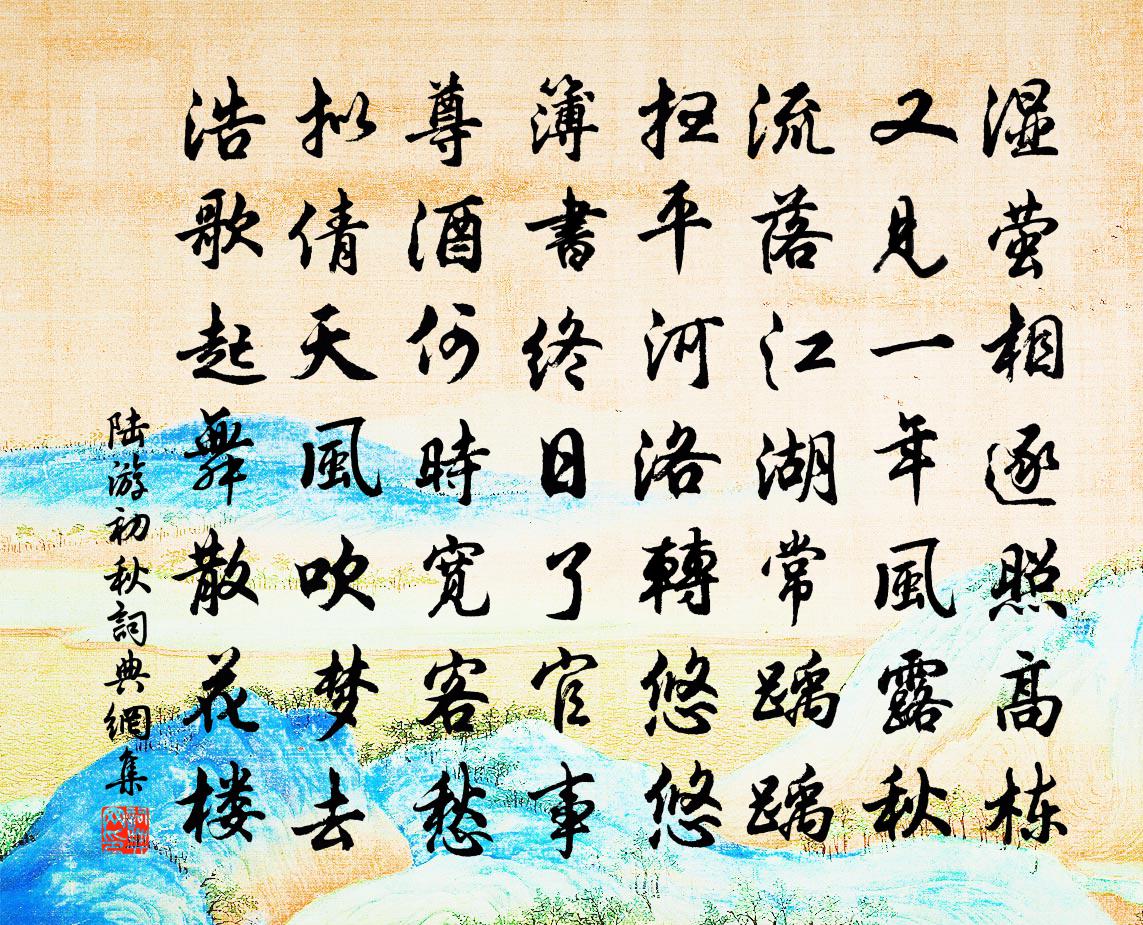 湿萤相逐照高栋
又見一年風露秋
流落江湖常踽踽
扫平河洛轉悠悠
簿書终日了官事
尊酒何時寬客愁
拟倩天風吹梦去
浩歌起舞散花楼
陆游初秋詞典網集